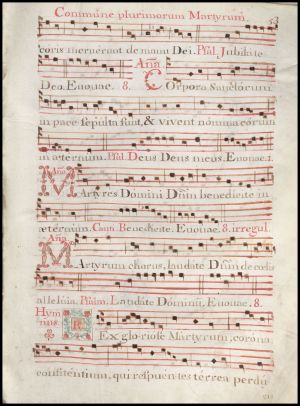 Commune plurimorum Martyrum.
coris meruerunt demanu Dei. Psal. Jubilate
Aña
Deo. Euouae. 8. Corpora Sanctorum
in pace sepulta sunt, & vivent nomina eorum
in æternum. Psal. Deus Deus meus. Euouae. 1.
Aña
Martyres Domini Dñum benedicite in
æternum. Cant. Benedicite. Euouae. 8. irregul.
Aña
Martyrum chorus, laudate Dñum de cœlis
alleluia. Psalm. Laudate Dominum. Euouae. 8.
Hym
nus.
Rex gloriose Martyrum, corona
confitentium, qui respuentes terrea perdu